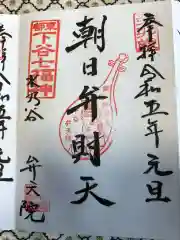 奉拝 令和五年元旦
朝日弁財天
下谷七福神
水乃谷
弁天院
令和五年元旦